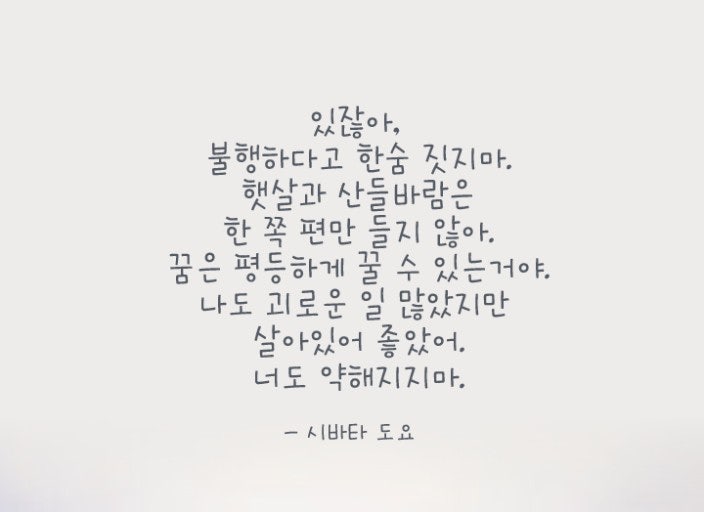 있잖아,
불행하다고 한숨 짓지마.
햇살과 산들바람은
한 쪽 편만 들지 않아.
꿈은 평등하게 꿀 수 있는거야.
나도 괴로운 일 많았지만
살아있어 좋았어.
너도 약해지지마.
- 시바타 도요